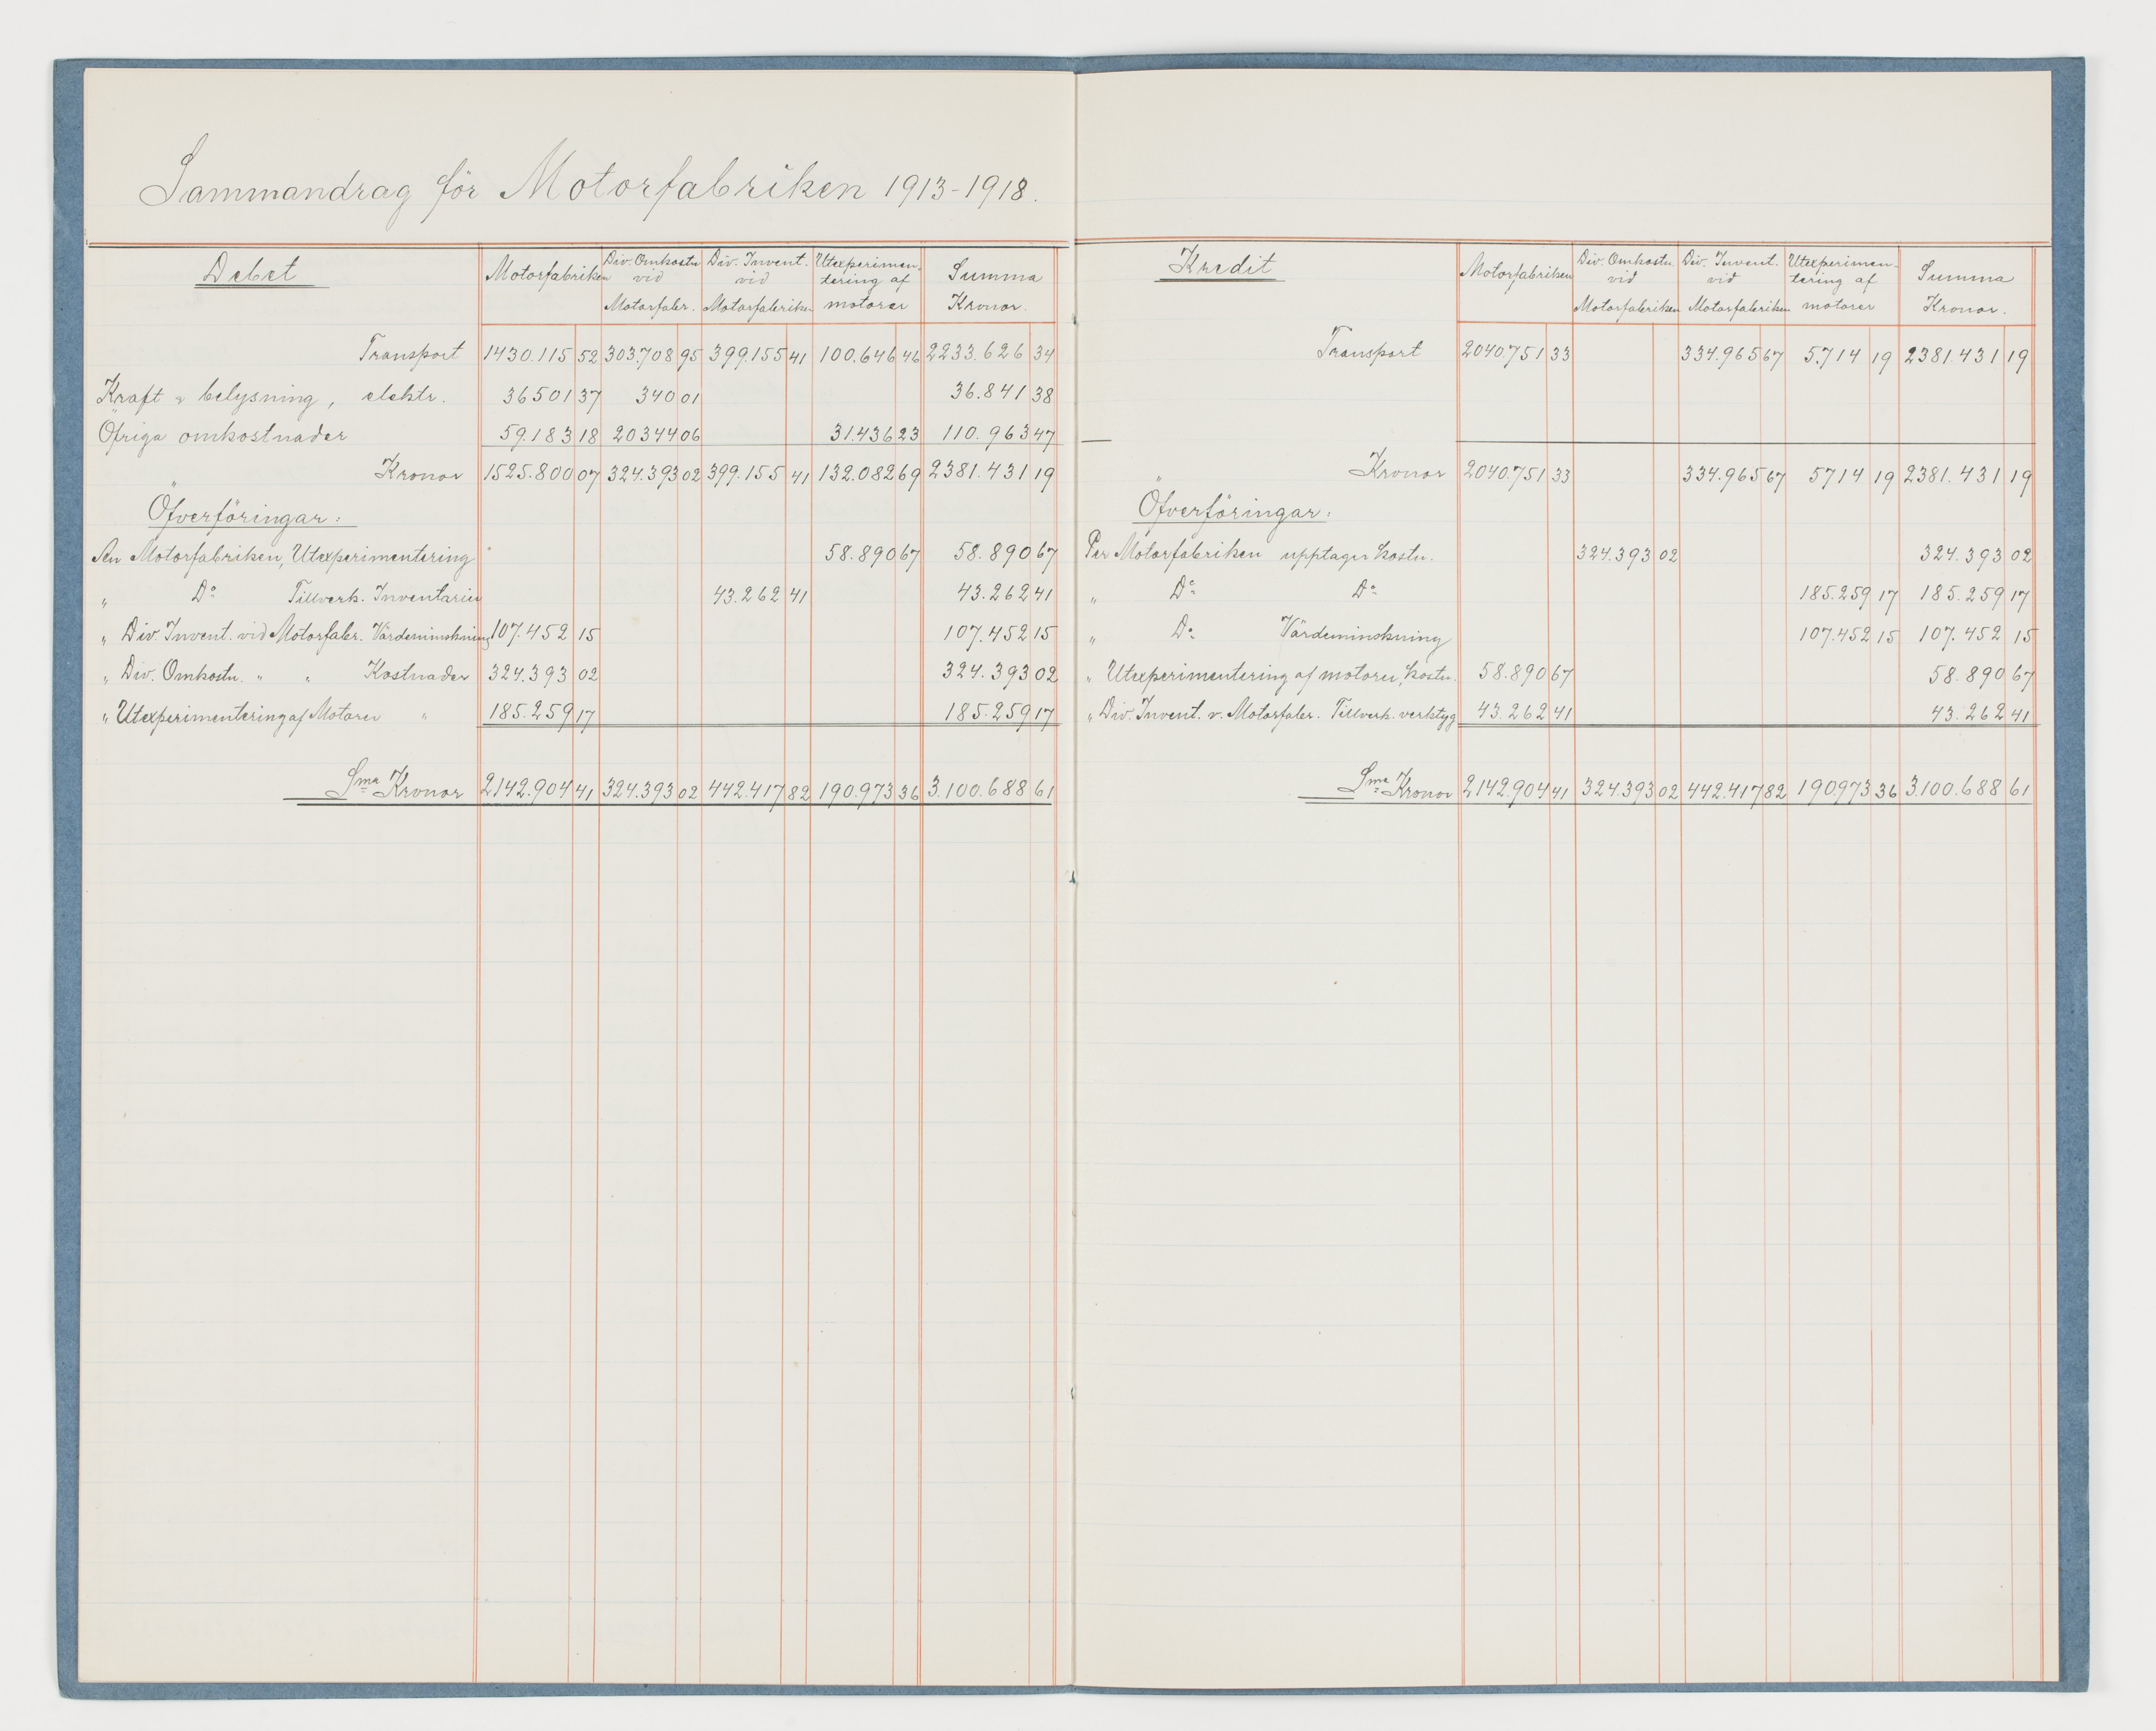 Sammandrag för Motorfabriken 1913-1918.
Debet Motorfabriken Div. Omkostn. vid Motorfabr. Div. Invent. vid Motorfabriken Utexperimentering af motorer Summa Kronor.
Transport 1430.115 52 303.708 95 399.155 41 100.646 46 2233.626 34
Kraft & belysning, elektr. 36501 37 340 01 36.841 38
Öfriga omkostnader 59.183 18 20344 06 31.436 23 110.963 47
Kronor 1525.800 07 324.393 02 399.155 41 132.082 69 2381.431 19
Öfverföringar:
An Motorfabriken, Utexperimentering 58.890 67 58.890 67
„ Do Tillverk. Inventarier 43.262 41 43.262 41
„ Div. Invent. vid Motorfabr. Värdeminskning 107.452 15 107.452 15
„ Div. Omkostn. „ „ Kostnader 324.393 02 324.393 02
„ Utexperimentering af Motorer „ 185.259 17 185.259 17
Sma Kronor 2142.904 41 324.393 02 442.417 82 190.973 36 3.100.688 61
Kredit Motorfabriken Div. Omkostn. vid Motorfabriken Div. Invent. vid Motorfabriken Utexperimentering af motorer Summa Kronor.
Transport 2040.751 33 334.965 67 5.714 19 2381.431 19
Kronor 2040.751 33 334.965 67 5714 19 2381.431 19
Öfverföringar:
Per Motorfabriken upptagn kostn. 324.393 02 324.393 02
„ Do Do 185.259 17 185.259 17
„ Do Värdeminskning 107.452 15 107.452 15
„ Utexperimentering af motorer, kostn. 58.890 67 58.890 67
„ Div. Invent. v. Motorfabr. Tillverk. verktyg 43.262 41 43.262 41
Sma Kronor 2142.904 41 324.393 02 442.417 82 190973 36 3.100.688 61